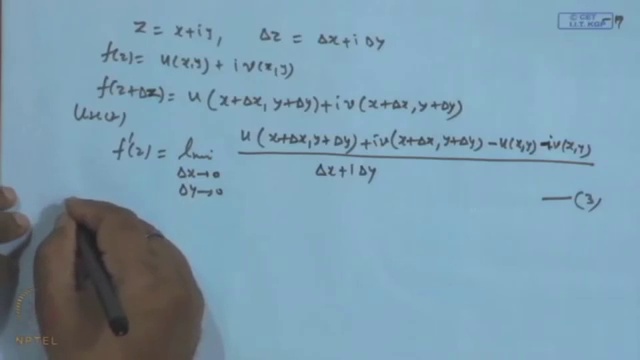 © CET
I.I.T. KGP
Z = x+iy, Δz = Δx+iΔy
f(z) = u(x,y) + i v(x,y)
f(z+Δz) = u(x+Δx, y+Δy) + i v(x+Δx, y+Δy)
f'(z) = lim Δx→0 Δy→0 u(x+Δx, y+Δy) + iv(x+Δx, y+Δy) - u(x,y) - iv(x,y)
Δx+iΔy
—(3)
NPTEL